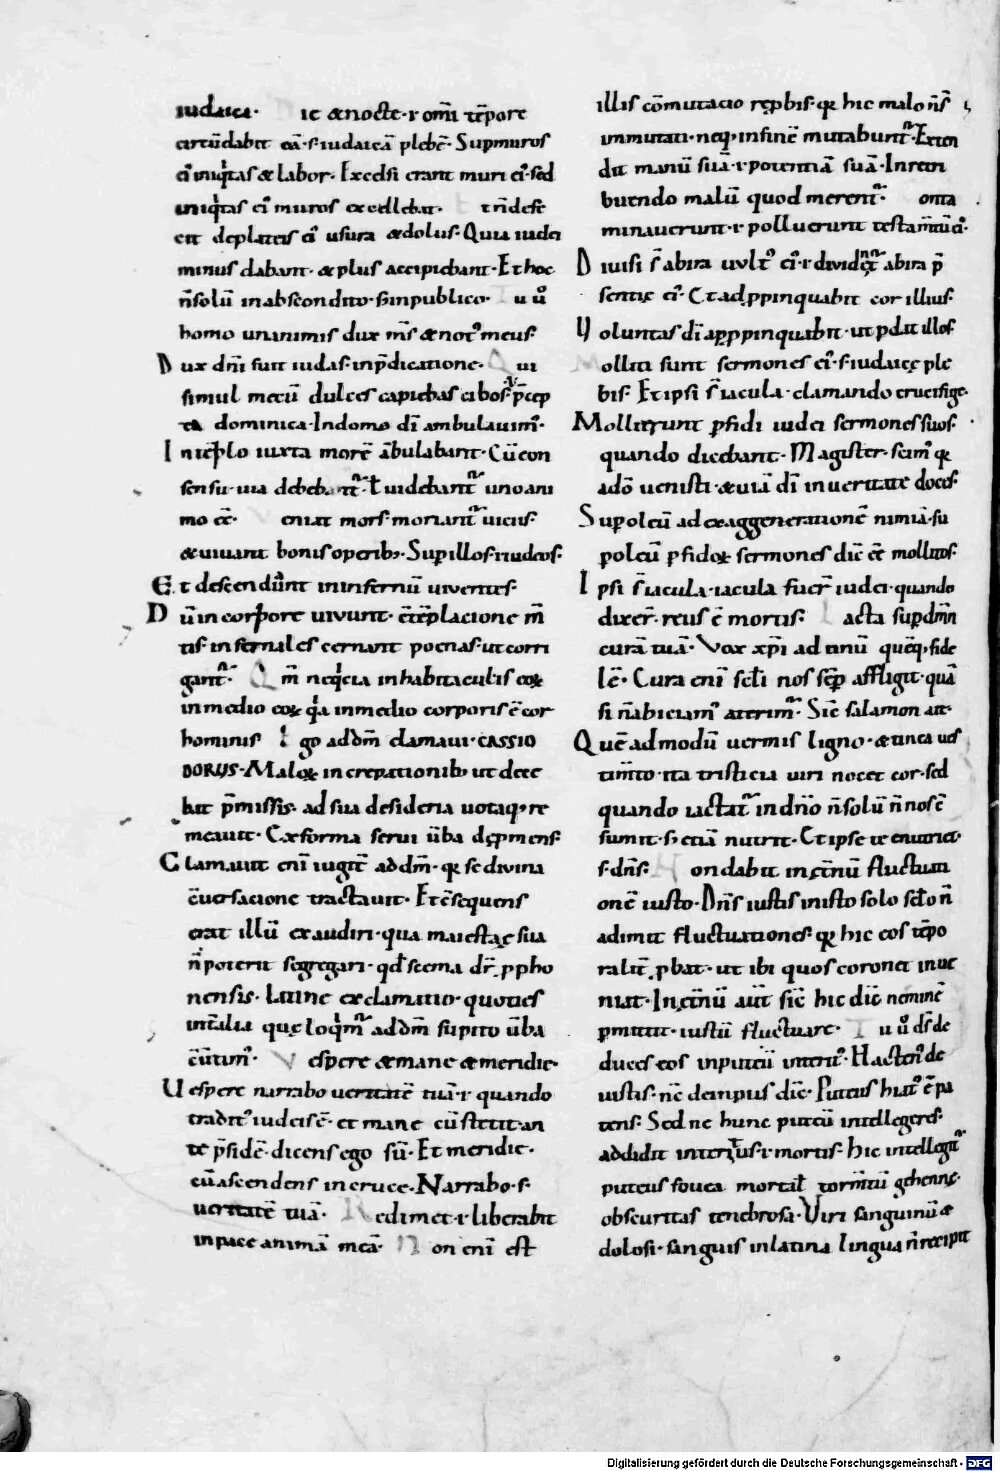 iudaica· ie &nocte·i· om̄i tēpore
circūdabit eā·s·iudaicā plebē· Sup muros
ei᾽ iniq̇tas & labor· Excelsi erant muri ei᾽·sed
iniq̇tas ei᾽ muros excellebat· & ñ defe
cit deplateis ei᾽ usura &dolus· Quia iudei
minus dabant· & plus accipiebant· Et hoc
ñ solū in abscondito·s; in publico· u ů
homo unanimis dux m̄s & not᾽ meus·
Dux dñi fuit iudas·in p̄dicatione· Qui
simul mecū dulces capiebas cibos· p̄cep
ta dominica· In domo dī ambulauim᾽·
In tēplo iuxta morē ābulabant· Cū con
sensu· uia debebant᾽· ł uidebant᾽ uno ani
mo ēē· V eniat mors· moriant᾽ uicius·
& uiuant bonis operib;· Sup illos·i·iudeos·
Et descendūnt in infernū uiuentes·
Dū in corpore uiuunt· c̄tēplacione m̄
tis· infernales cernant poenas· ut corri
gant᾽· Qm̄ neq̇cia in habitaculis eoꝝ
in medio eoꝝ q̇a in medio corporis ē cor
hominis Ego ad dm̄ clamaui· CASSIO
DORIUS· Maloꝝ increpationib; ut dece
bat p̄missis· ad sua desideria uotaq; re
meauit· Ex forma serui ūba dep̄mens·
Clamauit enī iugit̄ ad dm̄· qr se diuina
c̄uersacione tractauit· Et c̄sequens
erat illū exaudiri· qua maiestas sua
n̄ poterit segregari· qd̄ scema dr̄ p pho
nensis· latine exclamatio· quoties
int̄ alia que loq̇m᾽ ad dm̄ supito ūba
c̄ūtim᾽· Vespere & mane & meridie·
Uespere narrabo ueritatē tuā·i· quando
tradit᾽ iudeis ē· et mane cū stetit an
te p̄sidē· dicens ego sū· Et meridie·
cū ascendens in cruce· Narrabo·s·
ueritatē tuā· Redimet·i·liberabit
in pace animā meā· Non enī est
illis cōmutacio r̄e pbis· qr hic malo ñ s̄
immutati· neq; in finē mutabunt᾽· Exten
dit manū suā·i·potentiā suā· In retri
buendo malū quod merent᾽· Conta
minauerunt·i·polluerunt testam̄tū ei᾽·
Diuisi s̄ ab ira uult᾽ ei᾽·i·diuident᾽ ab ira p̄
sentie ei᾽· Et ad ppinquabit cor illius·
Uoluntas dī appropinquabit· ut pdat illos·
Molliti sunt sermones ei᾽·s·iudaice ple
bis· Et ipsi s̄ iacula· clamando crucifige·
Mollierunt pfidi iudei sermones suos·
quando dicebant· Magister· scim᾽ qr
a dō uenisti· & uiā dī in ueritate doces·
Sup oleū ad exaggenerationē nimiā·su
p oleū pfidoꝝ sermones dic̄ ēē mollitos·
Ipsi s̄ iacula· iacula fuer̄ iudei· quando
dixer̄· reus ē mortis· Iacta sup dm̄
curā tuā· Vox xp̄i ad unū quēq; fide
lē· Cura enī scl̄i nos sēp affligit· quā
si n̄ abiciam᾽ aterim᾽· Sic̄ salamon ait·
Quēadmodū uermis ligno· & tinea ues
tim̄to· ita tristicia uiri nocet cor· sed
quando iactat᾽ in dn̄o n̄ solū n̄ nos c̄
sumit· s; etiā nutrit· Et ipse te enutriet·
s·dn̄s· Non dabit in et̄nū fluctuati
onē iusto· Dn̄s iustis in isto solo sclo ñ
adimit fluctuationes· qr hic eos tēpo
ralit̄ pbat· ut ibi quos coronet inue
niat· In et̄nū aut̄ sic̄ hic dic̄ neminē
pmittit· iustū fluctuare· Tu ů ds̄ de
duces eos in puteū interit᾽· Hacten᾽ de
iustis· nc̄ de impus dic̄· Puteus hiat᾽ ē pa
tens· Sed ne hunc puteū intellegeres·
addidit interitus·i·mortis· hic intellegit᾽
puteus fouea mortal̄ torm̄tū gehenne·
obscuritas tenebrosa· Viri sanguinū &
dolosi· sanguis in latina lingua n̄ recipit